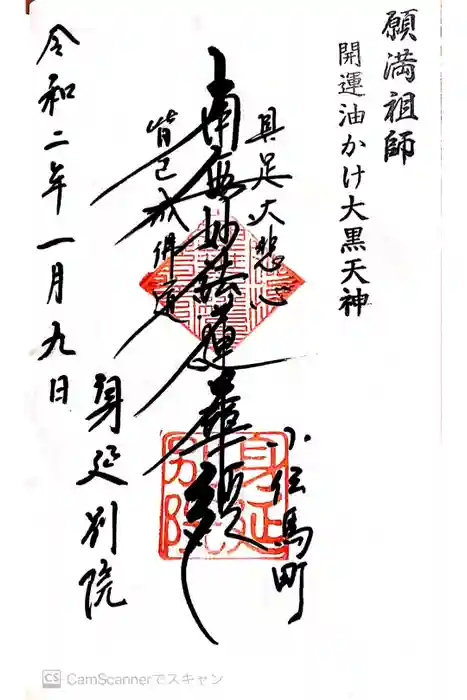 願満祖師
開運油かけ大黒天神
具足大悲心
小伝馬町
南無妙法蓮華経
皆已成佛道
身延別院
令和二年一月九日
身延
別院
CamScannerでスキャン